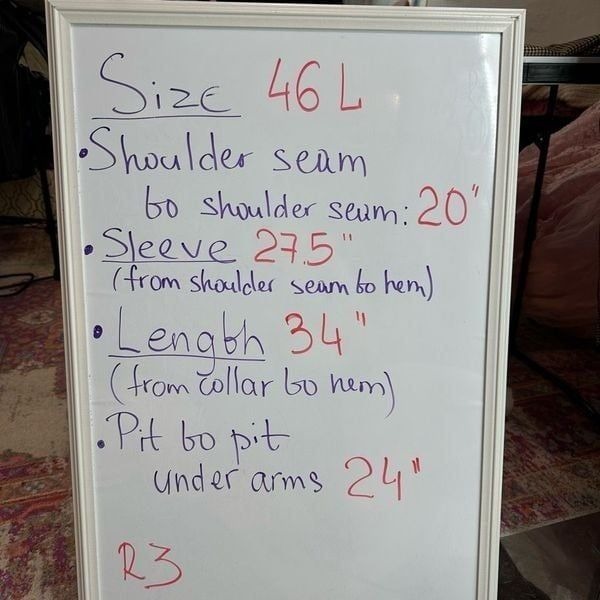 Size 46 L
• Shoulder seam
to shoulder seam: 20"
• Sleeve 27.5"
(from shoulder seam to hem)
• Length 34"
(from collar to hem)
• Pit to pit
under arms 24"
R3